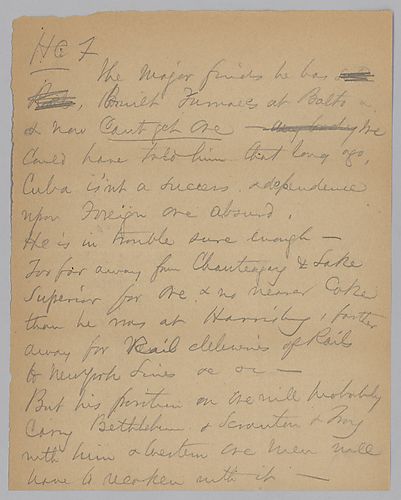 HC F
The Major finds he has
Built Furnaces at Balto
& now Cant get Ore — any body We
Could have told him that long ago,
Cuba isn't a success, & dependence
upon Foreign ore absurd.
He is in trouble sure enough —
Too far away from Chauteagay & Lake
Superior for ore, & no nearer Coke
than he was at Harrisbg, farther
away for Rail deliveries of Rails
to New York Lines &c &c —
But his position on ore will probably
Carry Bethlehem & Scranton & Troy
with him & Western ore men will
have to reckon with it —